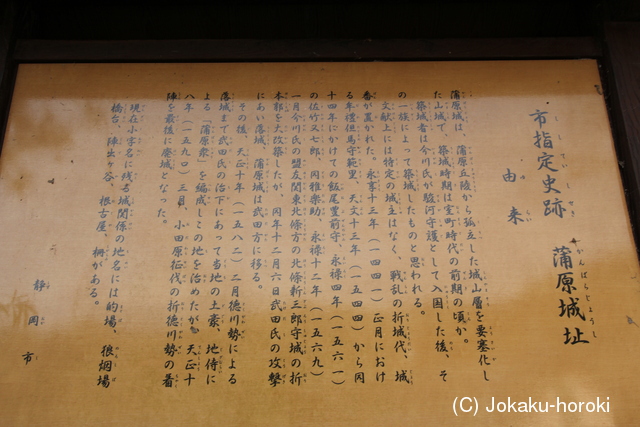 市指定史跡 蒲原城址
かんばらじょうし
由来
蒲原城は、蒲原丘陵から孤立した城山層を要塞化し
た山城で、築城時期は室町時代の前期の頃か。
築城者は今川氏が駿河守護として入国した後、そ
の一族によって築城したものと思われる。
文献上には特定の城主はなく、戦乱の折城代、城
番が置かれた。永享十三年（一四四一）正月におけ
る牟禮但馬守範里、天文十三年（一五四四）から同
十四年にかけての飯尾豊前守、永禄四年（一五六一）
の佐竹又七郎、同雅楽助、永禄十二年（一五六九）
一月今川氏の盟友関東北條方の北條新三郎守城の折
本郭を大改築したが、同年十二月六日武田氏の攻撃
にあい落城、蒲原城は武田方に移る。
その後、天正十年（一五八二）二月徳川勢による
落城まで武田氏の治下にあって当地の土豪、地侍に
よる「蒲原衆」を編成しこの地を治めたが、天正十
八年（一五九〇）三月、小田原征伐の折徳川勢の着
陣を最後に廃城となった。
現在小字名に残る城関係の地名には的場、狼烟場
橋台、陣出ヶ谷、根古屋、柵がある。
静岡市
(C) Jokaku-horoki